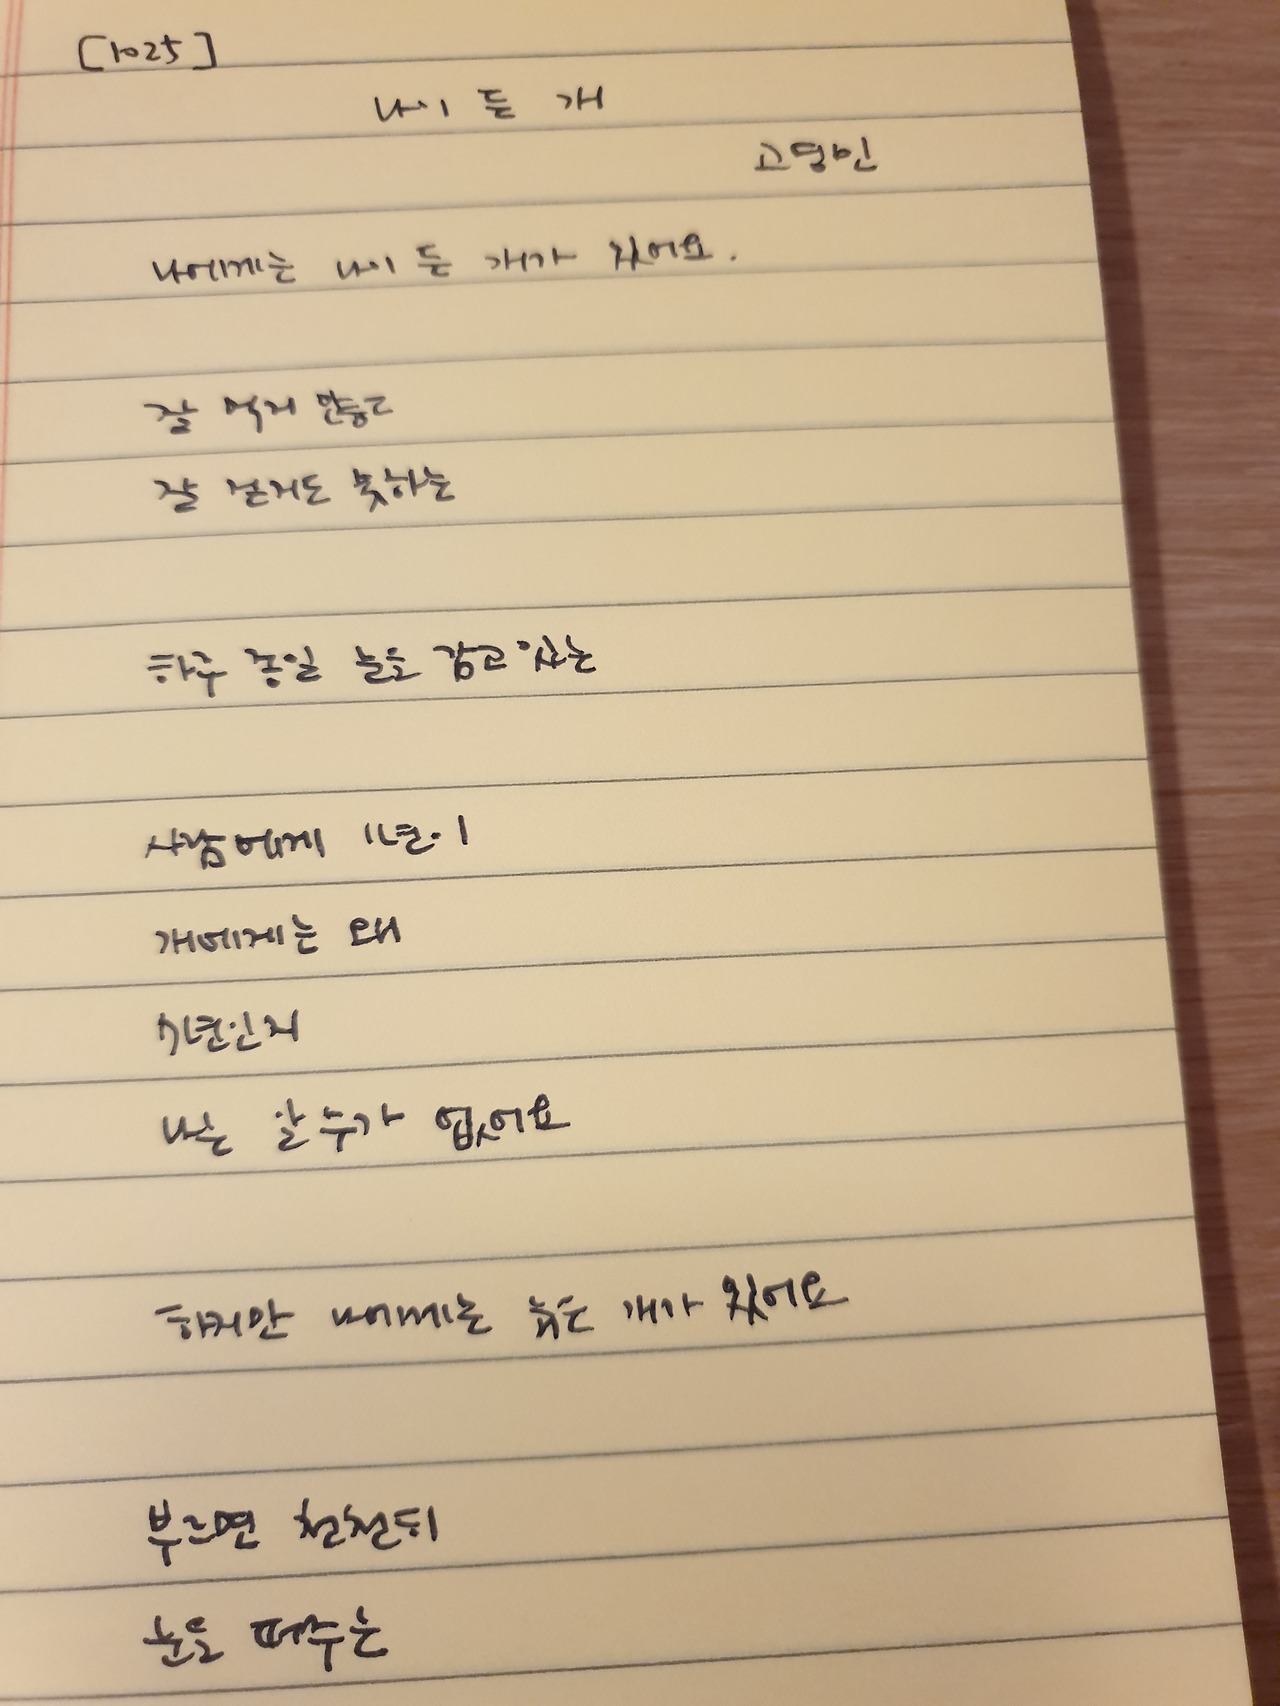 [1025]
나이 든 개
고영민
나에게는 나이 든 개가 있어요.
잘 먹지 않고
잘 걷지도 못하는
하루 종일 눈도 감고 있는
사람에게 1년이
개에게는 왜
7년인지
나는 알 수가 없어요
하지만 나에게는 늙은 개가 있어요
부르면 천천히
눈을 떠주는